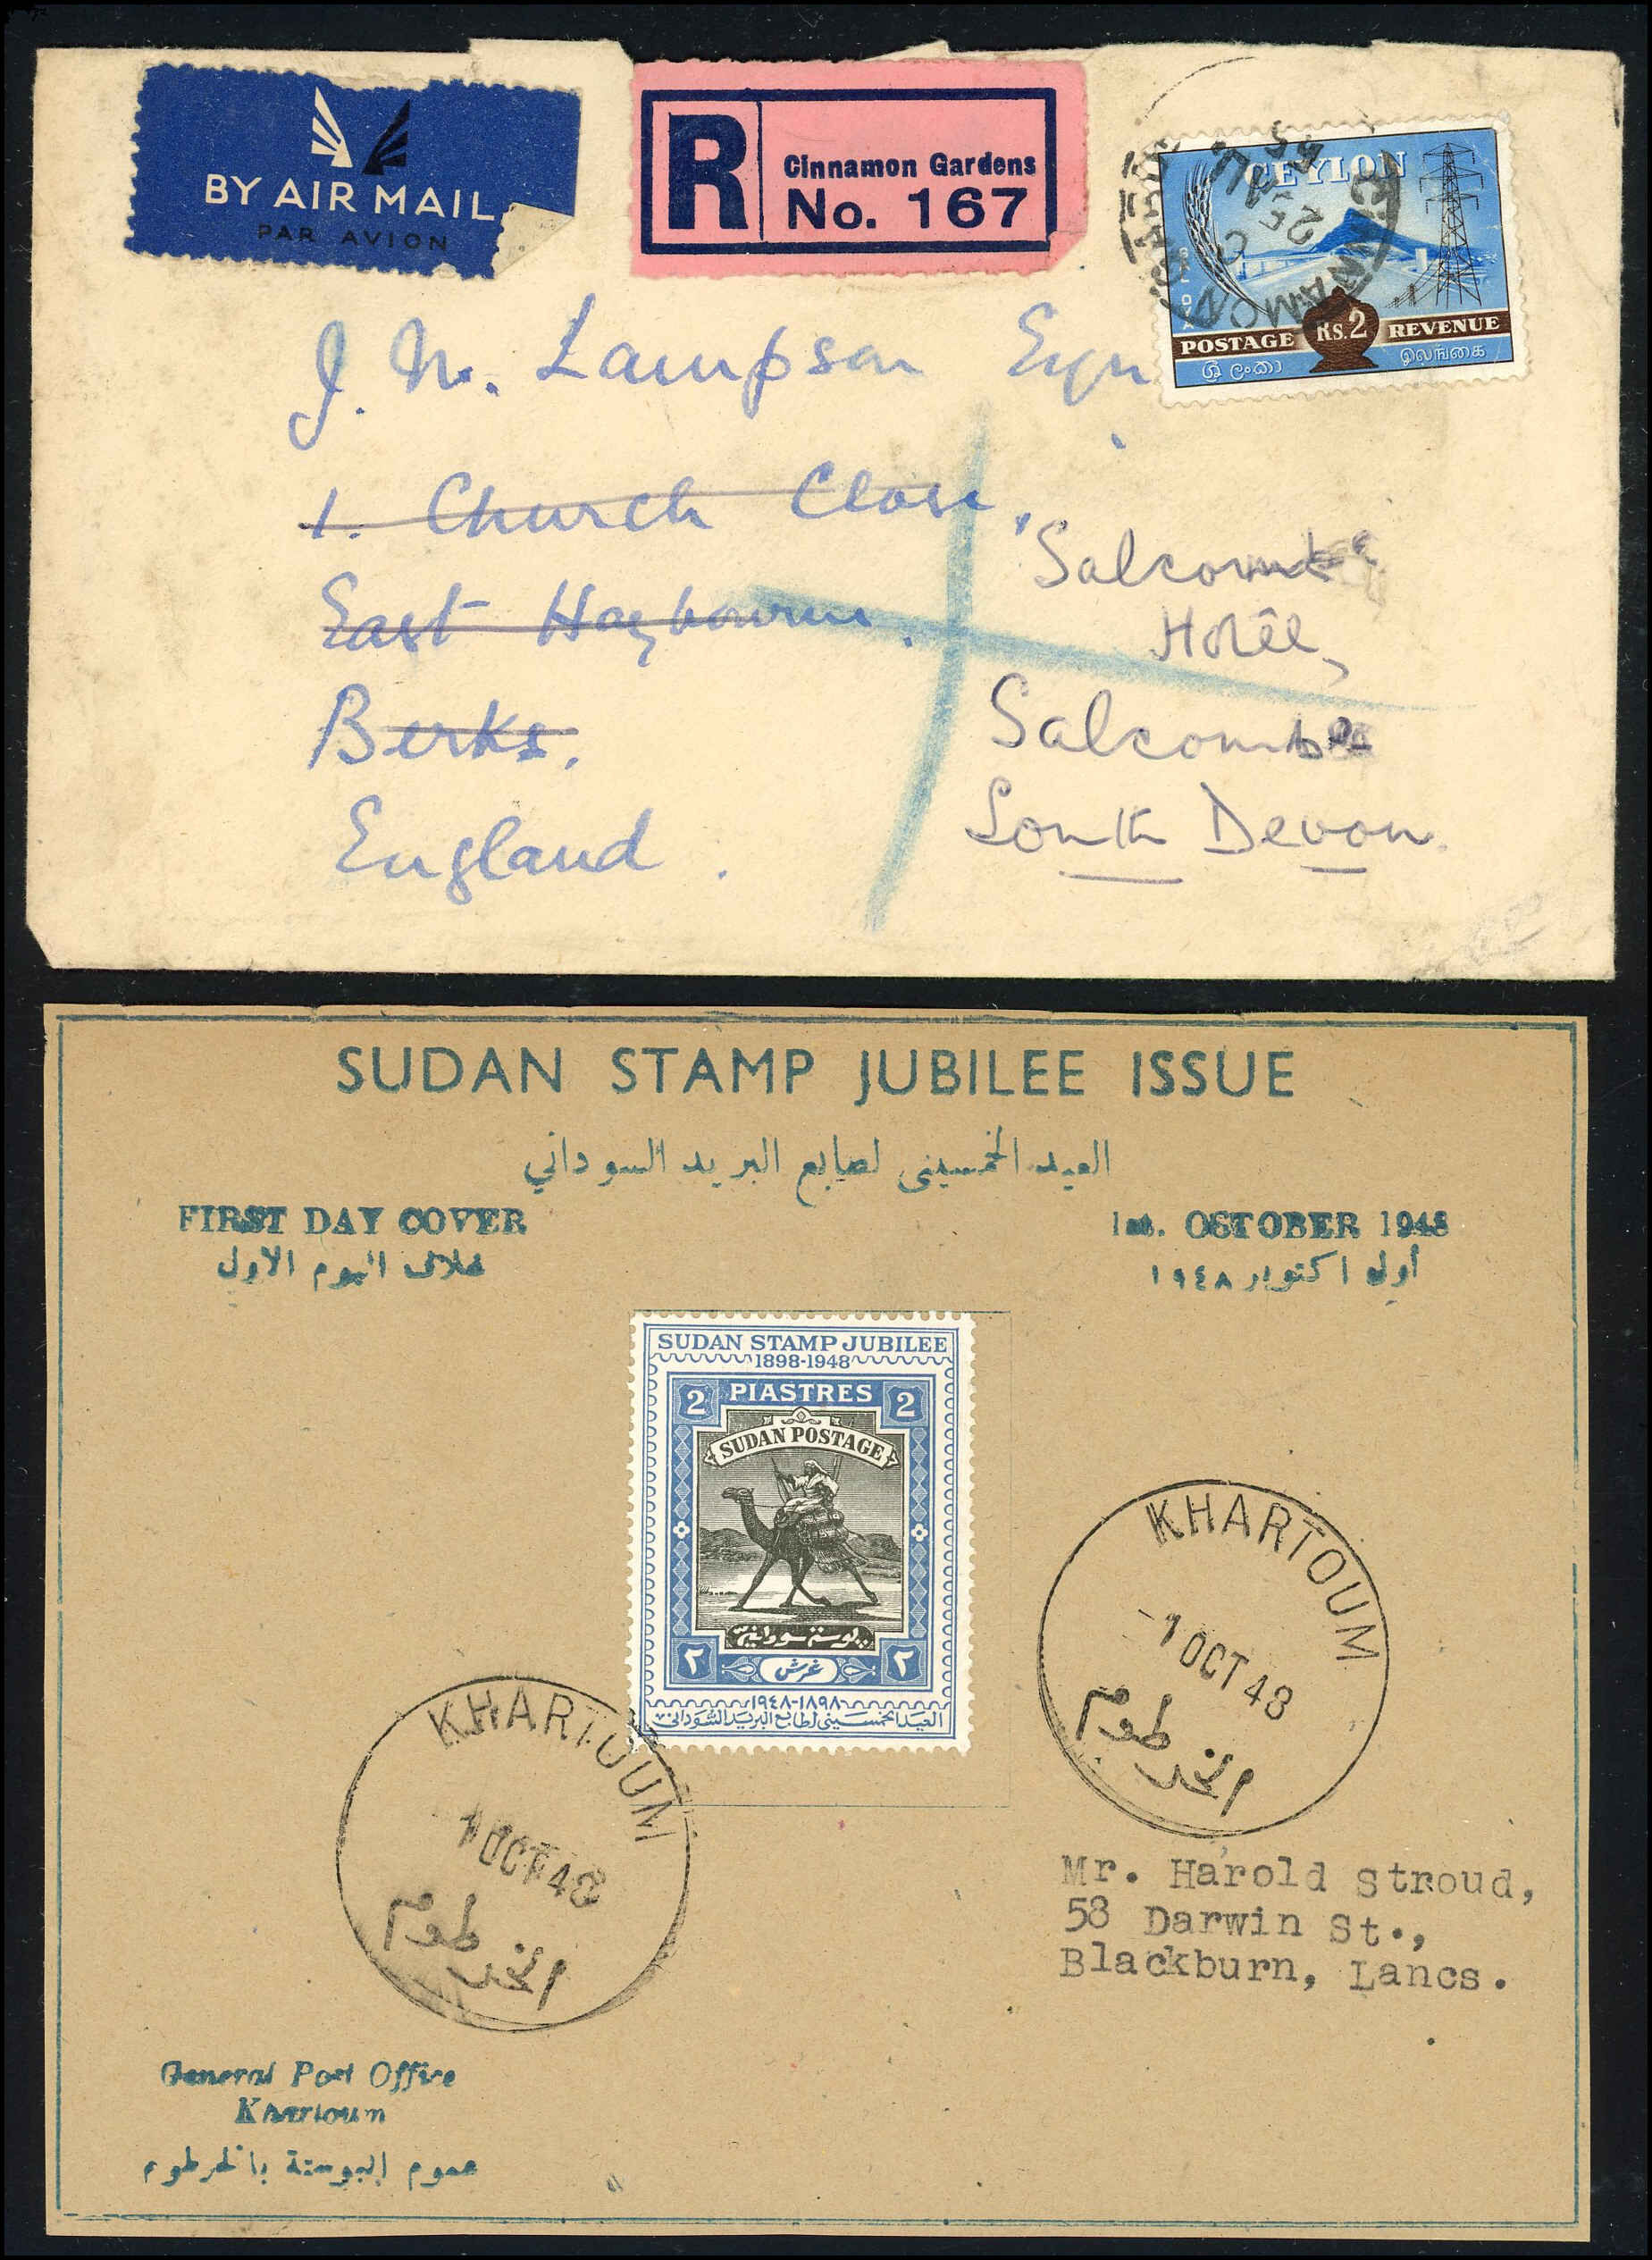 BY AIR MAIL
PAR AVION
R
Cinnamon Gardens
No. 167
CEYLON
25
POSTAGE Rs.2 REVENUE
ශ්‍රී ලංකා இலங்கை
J. M. Lampson Esqr
1. Church Close,
East Hagbourne.
Berks.
England.
"Salcombe"
Hotel,
Salcombe
South Devon.
SUDAN STAMP JUBILEE ISSUE
العيد الخمسيني لطابع البريد السوداني
FIRST DAY COVER
غلاف اليوم الاول
1st. OCTOBER 1948
أول اكتوبر ١٩٤٨
SUDAN STAMP JUBILEE
1898-1948
2 PIASTRES 2
SUDAN POSTAGE
بوسته سودانية
٢ غرش ٢
١٨٩٨-١٩٤٨
العيد الخمسيني لطابع البريد السوداني
KHARTOUM
-1 OCT 48
الخرطوم
KHARTOUM
1 OCT 48
الخرطوم
Mr. Harold Stroud,
58 Darwin St.,
Blackburn, Lancs.
General Post Office
Khartoum
عموم البوستة بالخرطوم